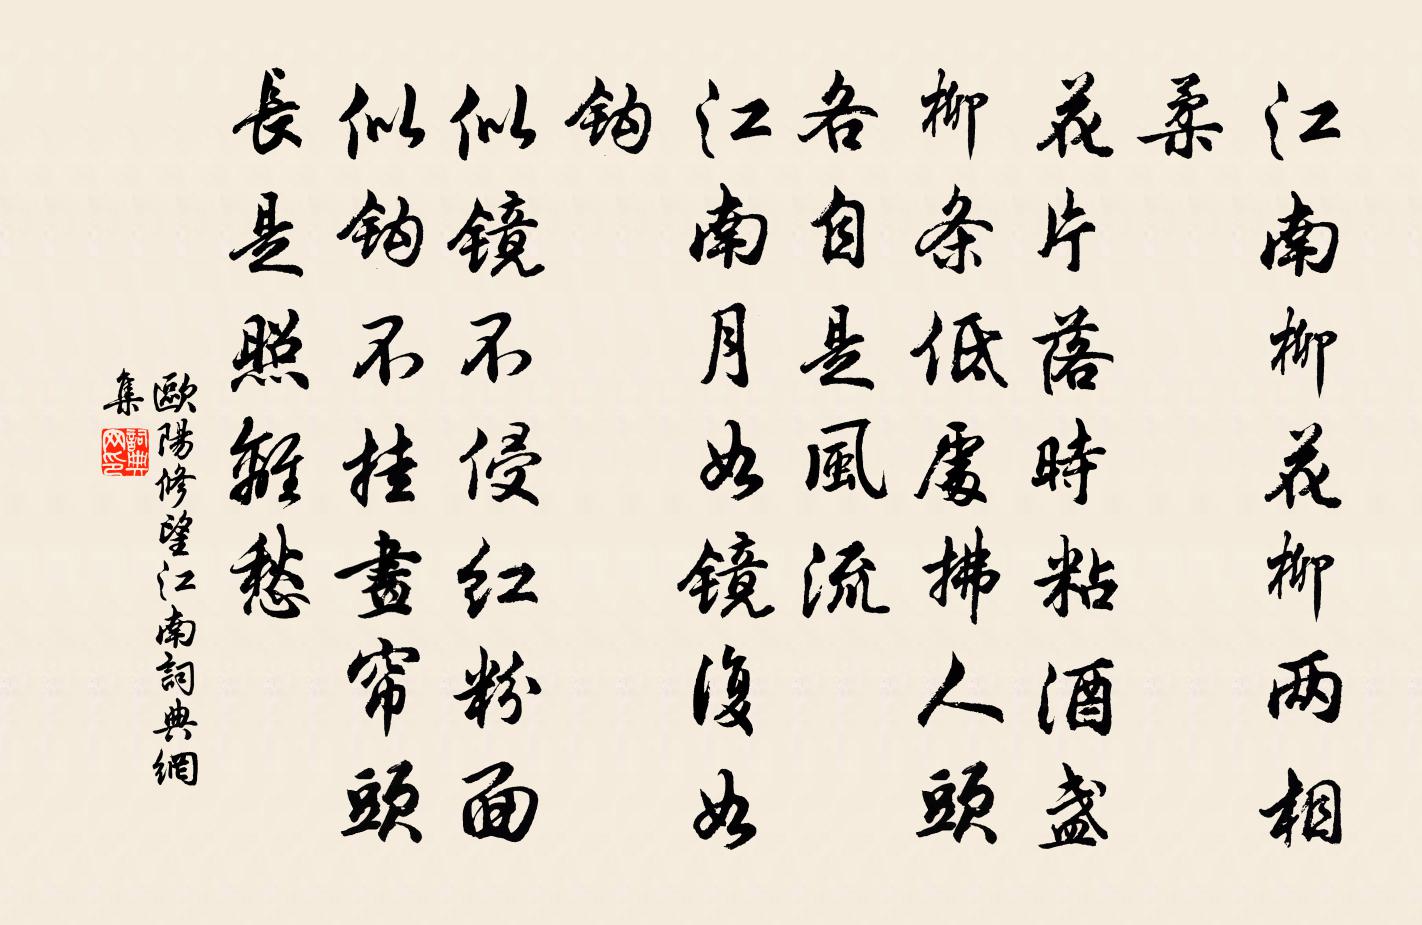 江南柳花柳两相
柔
花片落時粘酒盏
柳条低處拂人頭
各自是風流
江南月如镜復如
鈎
似镜不侵红粉面
似鈎不挂畫帘頭
長是照離愁
歐陽修望江南詞典網
集
詞典
网印